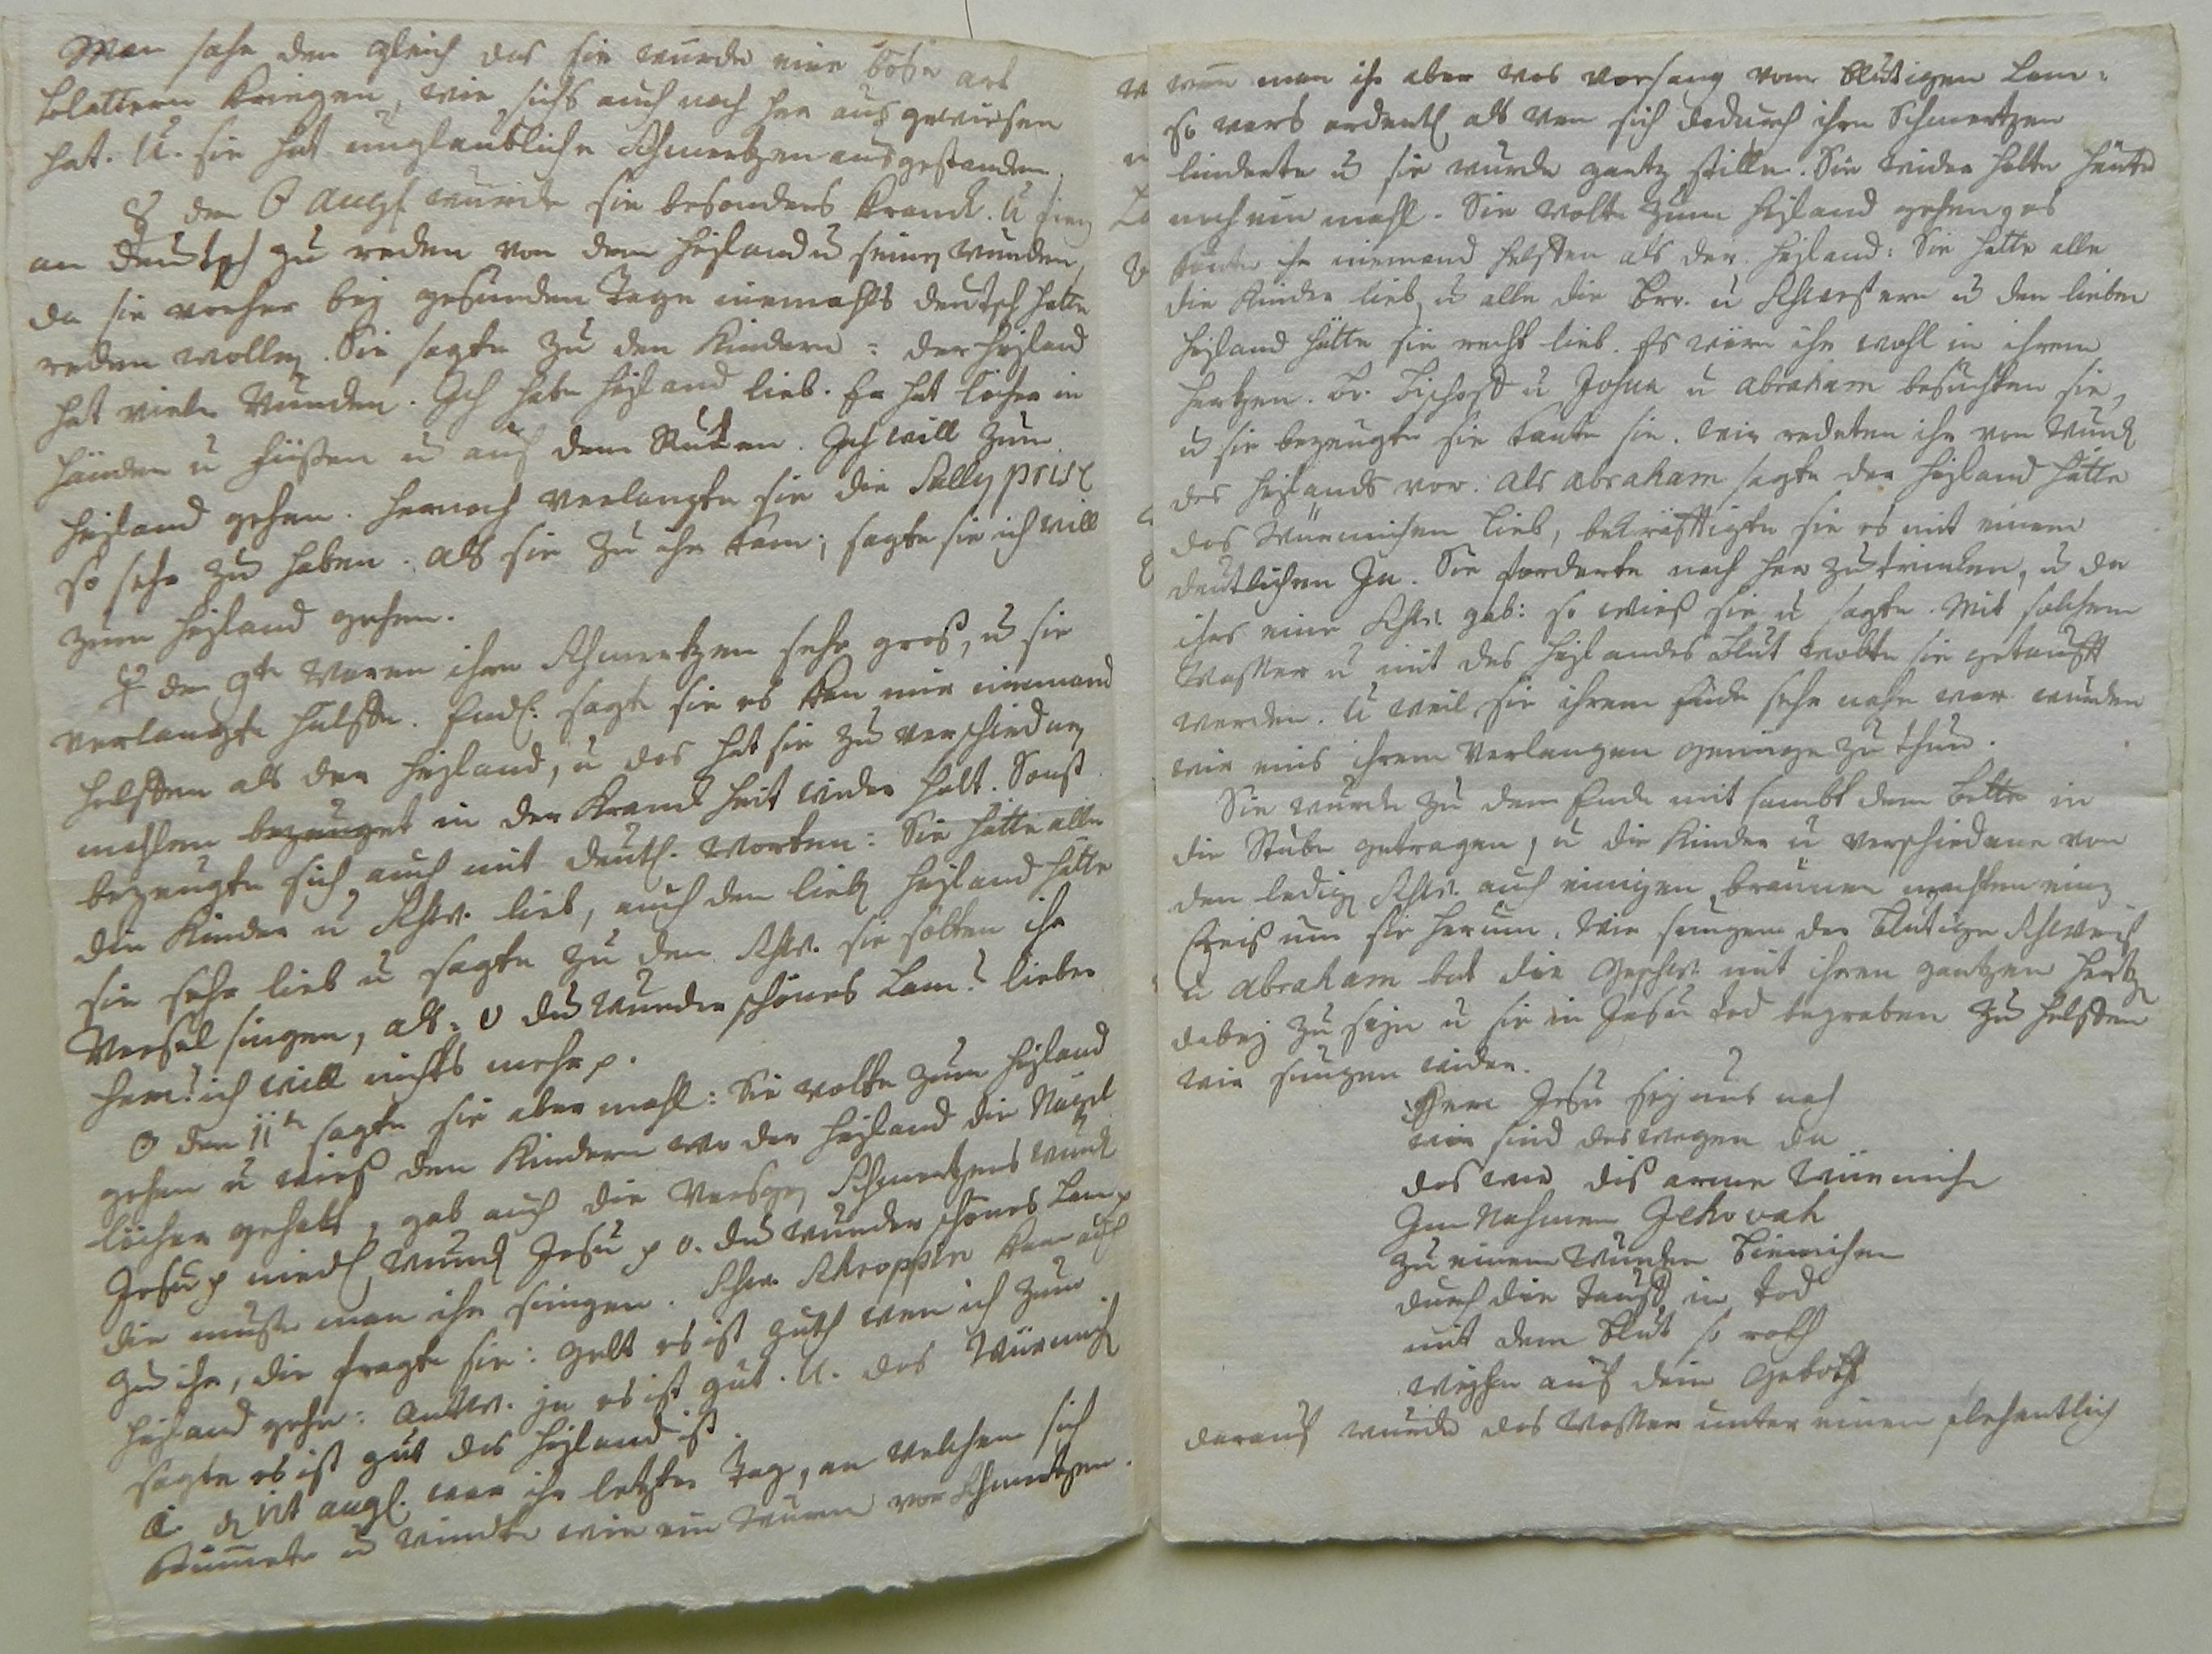 Man sahe den gleich das sie würde eine böse art
blattern kriegen, wie sichs auch nach her ausgewiesen
hat. U. sie hat unglaubliche Schmertzen ausgestanden.
☿ den 8 Augst wurde sie besonders kranck. U fieng
an deutsch zu reden von dem Heyland u seinen Wunden,
da sie vorher bey gesunden Tage niemahls deutsch hatte
reden wollen. Sie sagte zu den Kindern: der Heyland
hat viele Wunden. Ich habe Heyland lieb. Er hat löcher in
Händen u Füßen u auf dem Rücken. Ich will zum
Heyland gehen. hernach verlangte sie die Sally Prise
so sehr zu haben. als sie zu ihr kam; sagte sie ich will
zum Heyland gehen.
♀ den 9te waren ihre Schmertzen sehr groß, u sie
verlangte hülffe. Endl. sagte sie es kan mir niemand
helffen als der Heyland, u das hat sie zu verschiednen
mahlen bezeuget in der Kranckheit wider holt. Sonst
bezeugte sich auch mit deutl. Worten: Sie hätte alle
die Kinder u Schw. lieb, auch den lieben Heyland hätte
sie sehr lieb u sagte zu den Schw. sie solten ihr
Versel singen, als: O du wunder schönes Lam! lieber
Herr! ich will nichts mehr p.
☉ den 11te sagte sie aber mahl: Sie wolte zum Heyland
gehen u wieß den Kindern wo der Heyland die Nägel
löcher gehabt, gab auch die Versgen Schmertzens wund
Jesu p niedl. Wundl Jesu p o. du wunder schönes Lam p
die muste man ihr singen. Schw. Schroppin kam auch
zu ihr, die fragte sie: gelt es ist gut wen ich zum
Heyland gehe: Antw. ja es ist gut. U. das Würmch
sagte es ist gut das Heyland ist.
d 12t Augl. war ihr letzter Tag, an welchem sich
krümmete u windte wie ein Wurm vor Schmertzen.
wenn man ihr aber was vorsang vom blutigen Lam:
so wars ordentl. als wen sich dadurch ihre Schmertzen
linderte u sie wurde gantz stille. Sie wider holte heute
noch ein mahl. Sie wolte zum Heyland gehen, es
könte ihr niemand helffen als der Heyland: Sie hatte alle
die Kinder lieb, u alle die Brr. u Schwestern u den lieben
Heyland hätte sie recht lieb. Es wäre ihr wohl in ihrem
Hertzen. Br. Bischoff u Josua u Abraham besuchten sie,
u sie bezeugte sie kante sie. Wir redeten ihr von Wundl
des Heylands vor. Als Abraham sagte der Heyland hätte
das Würmichen lieb, bekräfftigte sie es mit einem
deutlichen Ja. Sie forderte nach her zu trincken, u da
ihrs eine Schw. gab: so wieß sie u sagte. Mit solchem
Wasser u mit des Heylandes Blut wolte sie getaufft
werden. U weil sie ihrem Ende sehr nahe war wurden
wir eins ihrem verlangen genüge zu thun.
Sie wurde zu dem Ende mit sambt dem Bette in
die Stube getragen, u die Kinder u verschiedene von
den ledign Schw. auch einigen braunen machten einen
Creiß um sie herum. Wir sungen der blutige Schweiß
u Abraham bat die Geschw. mit ihren gantzen Hertz
dabey zu seyn u sie in Jesu tod begraben zu helffen
Wir sungen wider.
Herr Jesu sey uns nah
wir sind deswegen da
das wir dis arme Würmiche
Im Nahmen Jehovah
zu einem Wunden Bienichen
durch die Tauff in tod
mit dem Blut so roth
weyhen auf dein geboth
darauf wurde das Wasser unter einem flehentlich